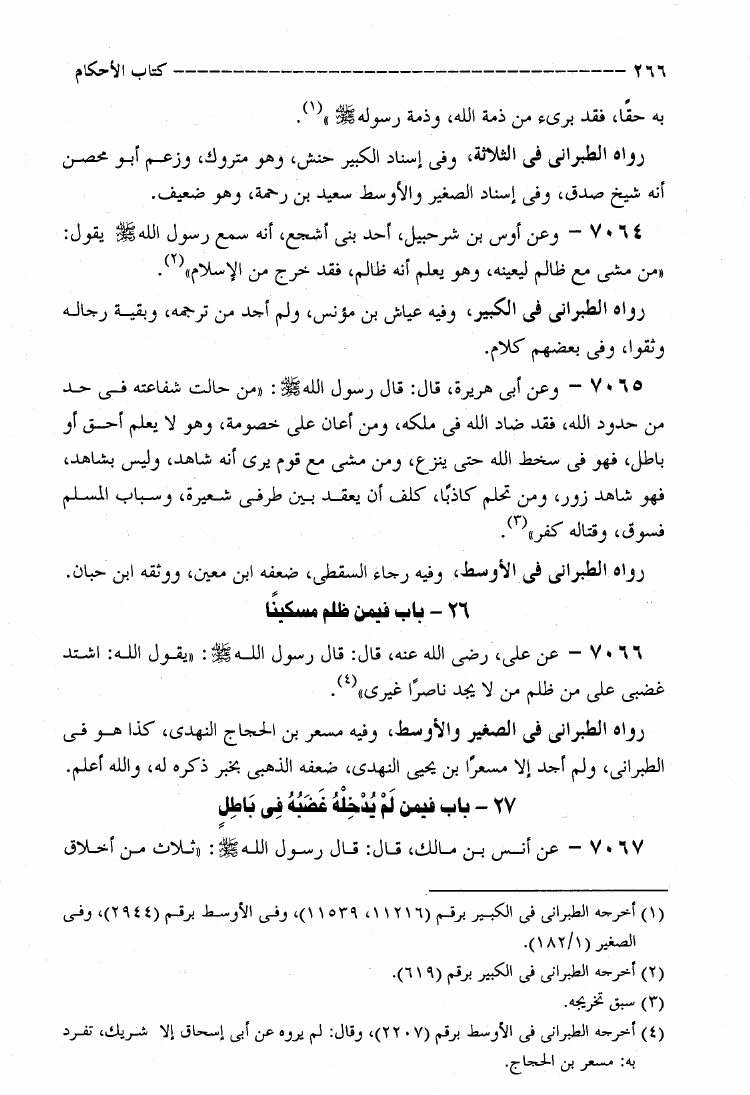 ٢٦٦ -------------------------------------- كتاب الأحكام
به حقًا، فقد برىء من ذمة الله، وذمة رسوله ﷺ »(١).
رواه الطبرانى فى الثلاثة، وفى إسناد الكبير حنش، وهو متروك، وزعم أبو محصن
أنه شيخ صدق، وفى إسناد الصغير والأوسط سعيد بن رحمة، وهو ضعيف.
٧٠٦٤ – وعن أوس بن شرحبيل، أحد بنى أشجع، أنه سمع رسول الله ﷺ يقول:
«من مشى مع ظالم ليعينه، وهو يعلم أنه ظالم، فقد خرج من الإسلام»(٢).
رواه الطبرانى فى الكبير، وفيه عياش بن مؤنس، ولم أجد من ترجمه، وبقية رجاله
وثقوا، وفى بعضهم كلام.
٧٠٦٥ – وعن أبى هريرة، قال: قال رسول الله ﷺ: «من حالت شفاعته فى حد
من حدود الله، فقد ضاد الله فى ملكه، ومن أعان على خصومة، وهو لا يعلم أحق أو
باطل، فهو فى سخط الله حتى ينزع، ومن مشى مع قوم يرى أنه شاهد، وليس بشاهد،
فهو شاهد زور، ومن تحلم كاذبًا، كلف أن يعقد بين طرفى شعيرة، وسباب المسلم
فسوق، وقتاله كفر»(٣).
رواه الطبرانى فى الأوسط، وفيه رجاء السقطى، ضعفه ابن معين، ووثقه ابن حبان.
٢٦ – باب فيمن ظلم مسكينًا
٧٠٦٦ – عن على، رضى الله عنه، قال: قال رسول الله ﷺ: «يقول الله: اشتد
غضبى على من ظلم من لا يجد ناصرًا غيرى»(٤).
رواه الطبرانى فى الصغير والأوسط، وفيه مسعر بن الحجاج النهدى، كذا هو فى
الطبرانى، ولم أجد إلا مسعرًا بن يحيى النهدى، ضعفه الذهبى بخبر ذكره له، والله أعلم.
٢٧ – باب فيمن لَمْ يُدْخِلْهُ غَضَبُهُ فِى بَاطِلٍ
٧٠٦٧ – عن أنس بن مالك، قال: قال رسول الله ﷺ: «ثلاث من أخلاق
(١) أخرجه الطبرانى فى الكبير برقم (١١٢١٦، ١١٥٣٩)، وفى الأوسط برقم (٢٩٤٤)، وفى
الصغير (١٨٢/١).
(٢) أخرجه الطبرانى فى الكبير برقم (٦١٩).
(٣) سبق تخريجه.
(٤) أخرجه الطبرانى فى الأوسط برقم (٢٢٠٧)، وقال: لم يروه عن أبى إسحاق إلا شريك، تفرد
به: مسعر بن الحجاج.